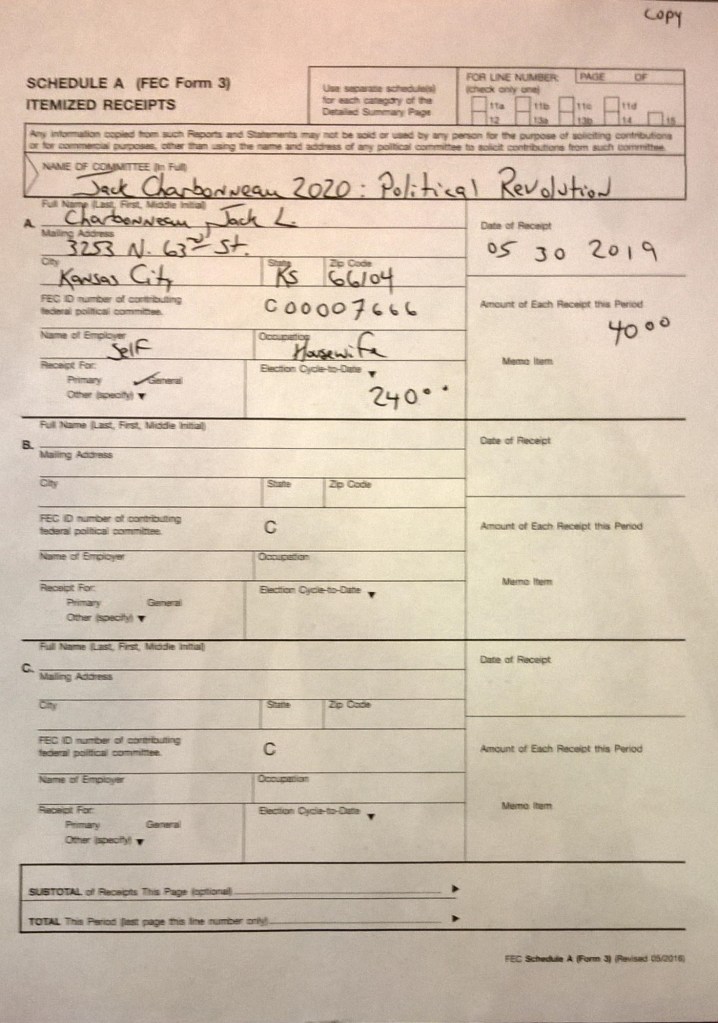 Copy
SCHEDULE A (FEC Form 3)
ITEMIZED RECEIPTS
Use separate schedule(s)
for each category of the
Detailed Summary Page
FOR LINE NUMBER: PAGE OF
(check only one)
11a 11b 11c 11d
12 13a 13b 14 15
Any information copied from such Reports and Statements may not be sold or used by any person for the purpose of soliciting contributions
or for commercial purposes, other than using the name and address of any political committee to solicit contributions from such committee.
NAME OF COMMITTEE (In Full)
Jack Charbonneau 2020: Political Revolution
Full Name (Last, First, Middle Initial)
A. Charbonneau, Jack L.
Mailing Address
3253 N. 63rd St.
City State Zip Code
Kansas City KS 66104
FEC ID number of contributing
federal political committee.
C 00007666
Name of Employer Occupation
Self Housewife
Receipt For: Election Cycle-to-Date ▼
Primary General
Other (specify) ▼
240 00
Date of Receipt
05 30 2019
Amount of Each Receipt this Period
40 00
Memo Item
Full Name (Last, First, Middle Initial)
B.
Mailing Address
City State Zip Code
FEC ID number of contributing
federal political committee.
C
Name of Employer Occupation
Receipt For: Election Cycle-to-Date ▼
Primary General
Other (specify) ▼
Date of Receipt
Amount of Each Receipt this Period
Memo Item
Full Name (Last, First, Middle Initial)
C.
Mailing Address
City State Zip Code
FEC ID number of contributing
federal political committee.
C
Name of Employer Occupation
Receipt For: Election Cycle-to-Date ▼
Primary General
Other (specify) ▼
Date of Receipt
Amount of Each Receipt this Period
Memo Item
SUBTOTAL of Receipts This Page (optional)
TOTAL This Period (last page this line number only)
FEC Schedule A (Form 3) (Revised 05/2016)